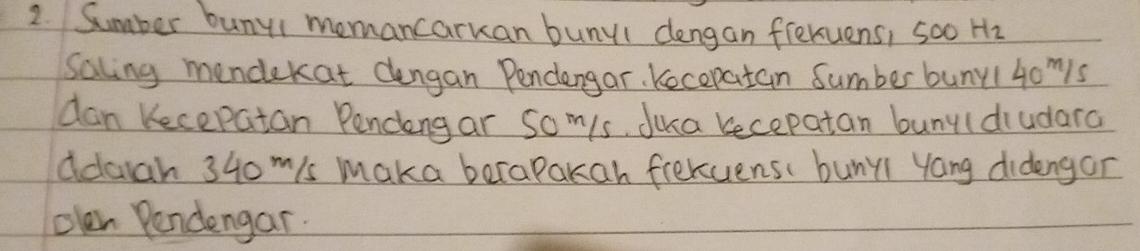 2. Sumber bunyi memancarkan bunyi dengan frekuensi 500 Hz
Saling mendekat dengan Pendengar. Kecepatan Sumber bunyi 40 m/s
dan Kecepatan Pendengar 50 m/s. Jika kecepatan bunyi diudara
Adalah 340 m/s Maka berapakah frekuensi bunyi yang didengar
oleh Pendengar.